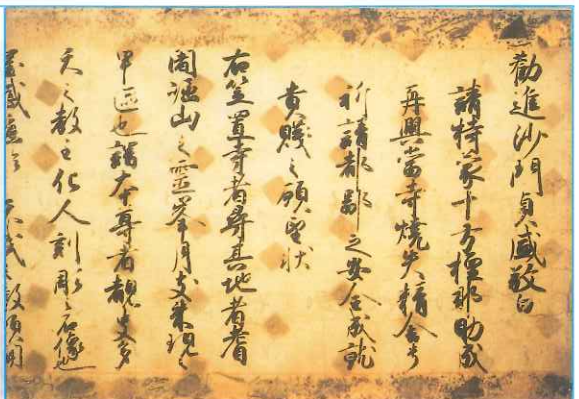 勸進沙門貞盛敬白
請特蒙十方檀那助成
再興當寺燒失精舎
祈請都鄙之安全成就
貴賤之願望状
右笠置寺者尋其地者耆
闍崛山之靈峯月支来現之
甲區也謂本尊者覩史多
天之教主化人刻彫之石像也